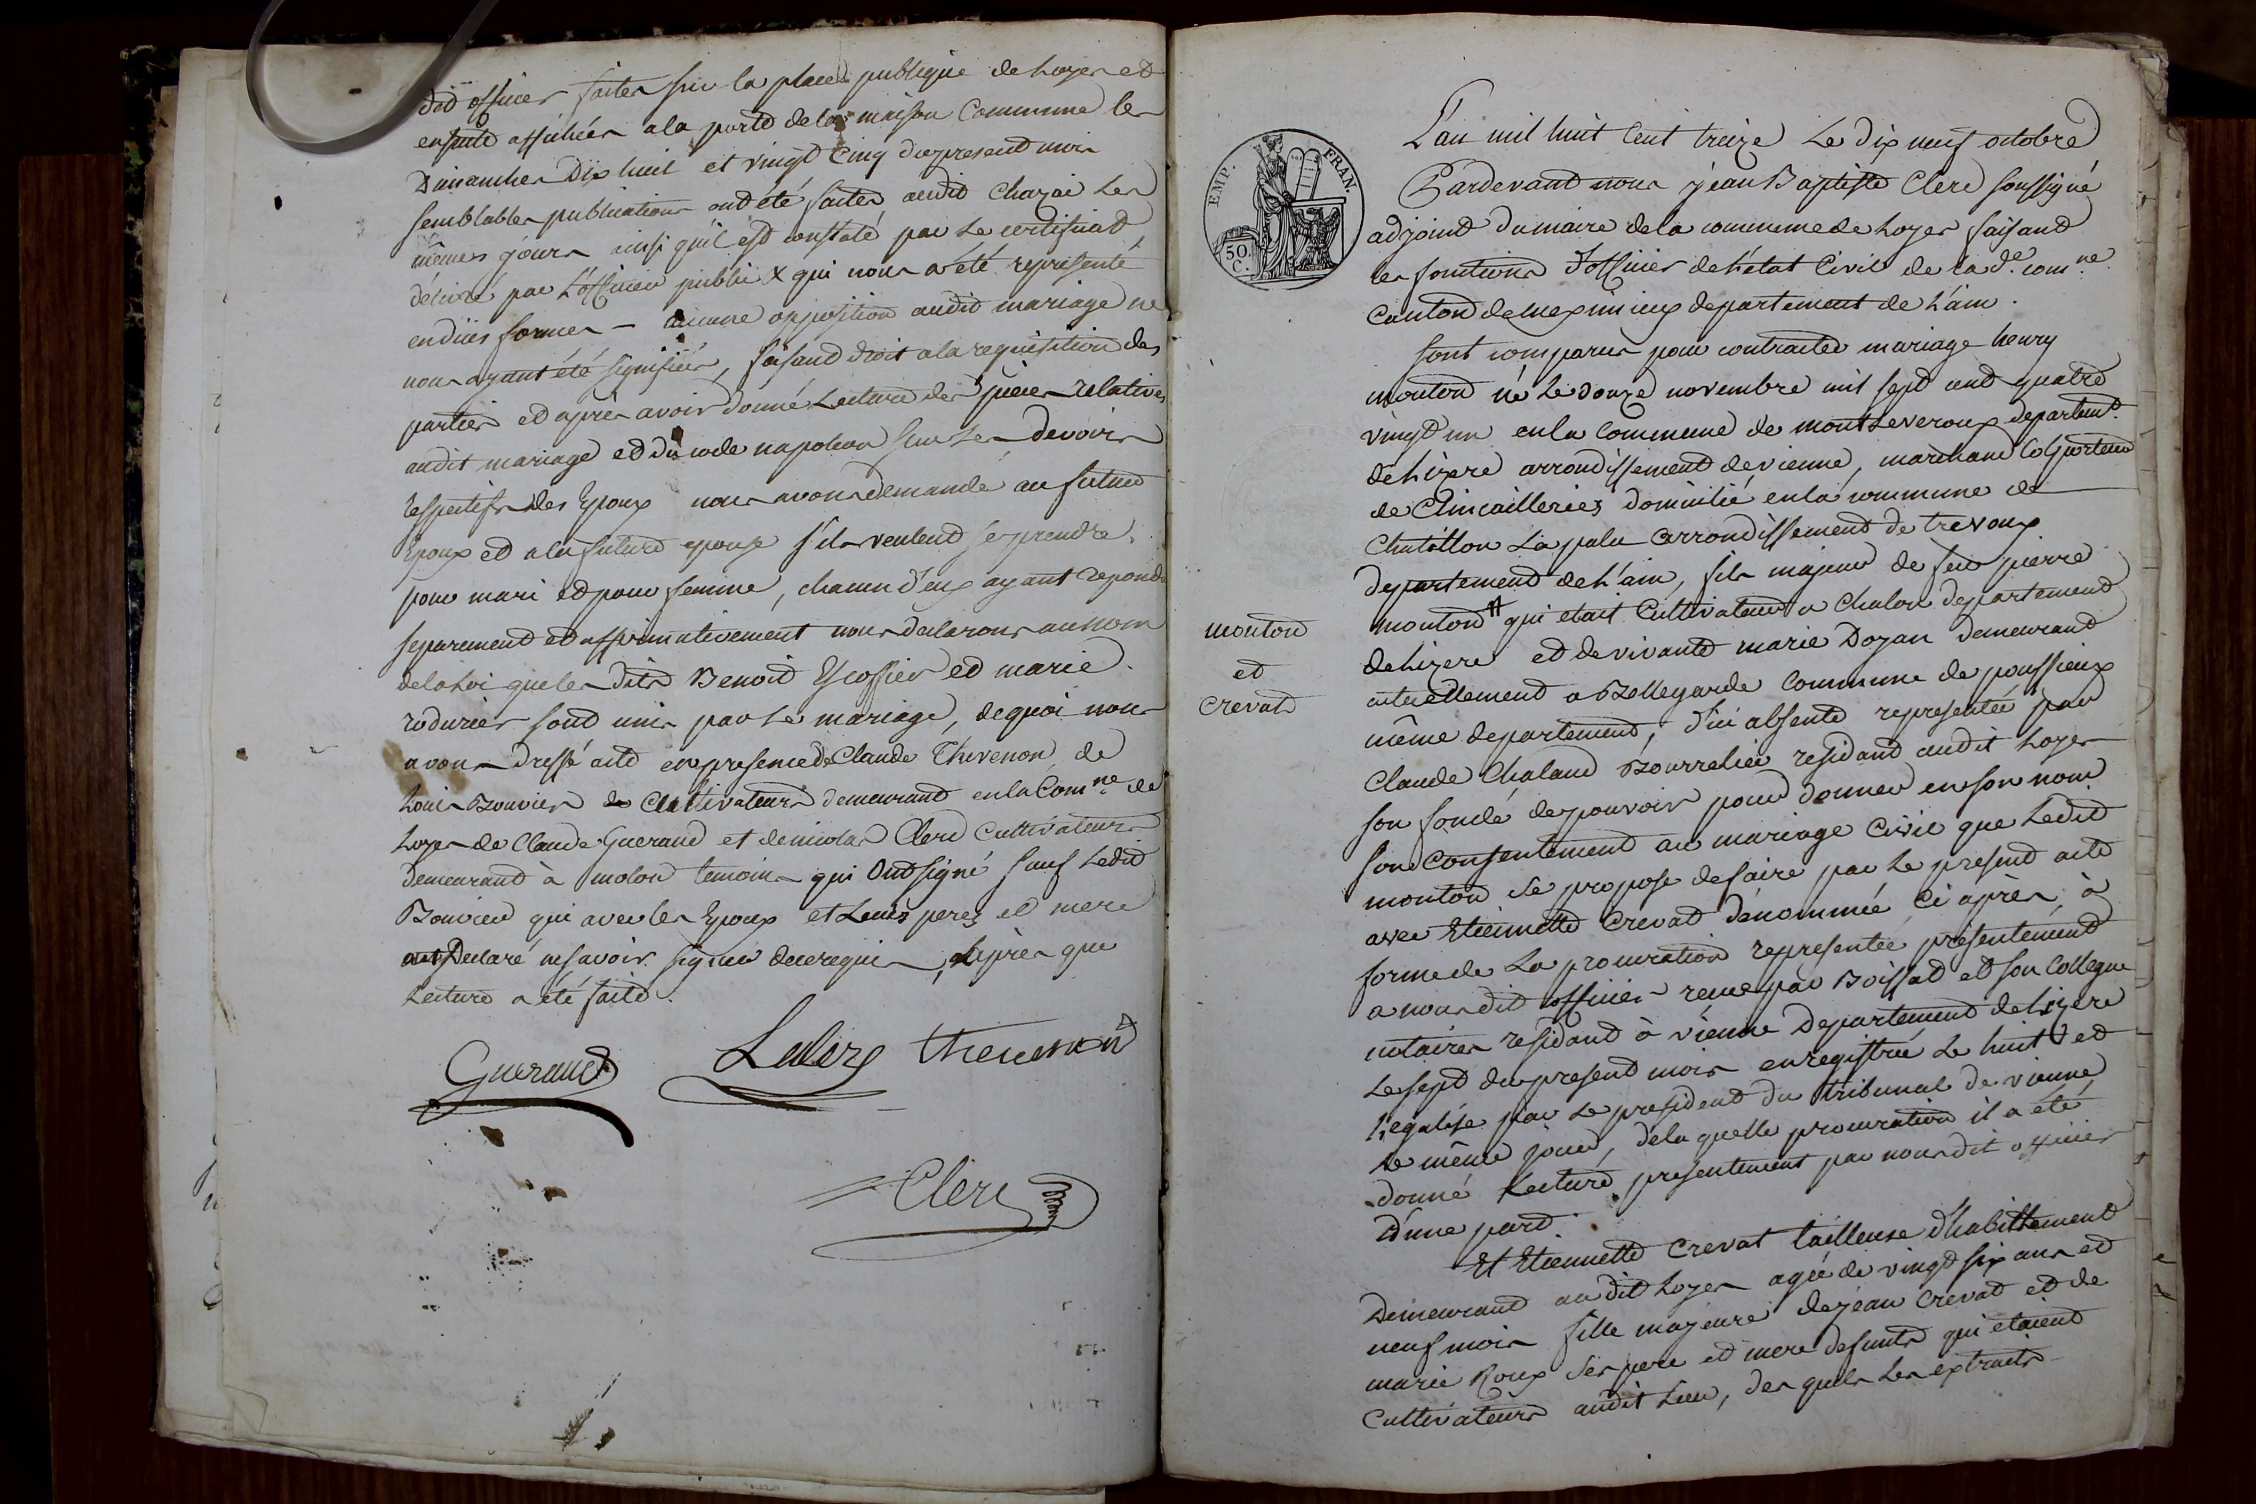 dit officier faites sur la place publique de Loyes et
ensuite affichées a la porte de la maison Commune les
Dimanches Dix huit et vingt Cinq du present mois
semblables publications ont été faites audit Chazai Les
mêmes jours ainsi qu'il est constaté par Le certificat
délivré par L'officier public & qui nous a été representé
en dües formes — aucune opposition audit mariage ne
nous ayant été signifiée, faisant droit a la requisition des
parties et après avoir donné Lecture des pièces relatives
audit mariage et du code napoleon sur Les devoirs
respectifs des Epoux nous avons demandé au futur
Epoux et a la future epouse s'ils veulent se prendre
pour mari et pour femme, chacun d'eux ayant repondu
separement et affirmativement nous declarons au nom
de la Loi que les dits Benoit Escoffier et marie
rodurier sont unis par Le mariage, de quoi nous
avons dressé acte en presence de Claude Thevenon, de
Louis Bouvier Cultivateurs demeurant en la Com.ne de
Loyes de Claude Guerand et de nicolas Clerc Cultivateurs
demeurant à molon temoins qui Ont signé sauf Ledit
Bouvier qui avec les Epoux et Leurs peres et mere
ont Declaré ne savoir signer de ce requis, après que
Lecture a été faite.
Guerand Leclerc thevenon
Clerc
EMP. FRAN.
50. C.
L'an mil huit Cent treize Le dix neuf octobre
Pardevant nous jean Baptiste Clerc soussigné
adjoint du maire de la commune de Loyes faisant
les fonctions d'officier de L'état Civil de la de. comne.
Canton de meximieux departement de L'ain.
sont comparus pour contracter mariage henry
mouton né Le douze novembre mil sept cent quatre
vingt un en la Commune de montseveroux departemt.
de Lizere arrondissement de vienne, marchand Colporteur
de Clincailleries domicilié en la commune de
Chatillon La palu arrondissement de trevoux
departement de L'ain, fils majeur de feu pierre
mouton # qui etait Cultivateur a Chalon departement
de Lizere et de vivante marie Dozan demeurant
actuellement a Bellegarde Commune de poussieux
même departement, d'ici absente representée par
Claude Chaland Bourrelier residant audit Loyes
son fondé de pouvoir pour donner en son nom
son Consentement au mariage Civil que Ledit
mouton se propose de faire par Le present acte
avec Etiennette Crevat dénommée ci après, à
forme de La procuration representée presentement
a nous dit officier recue par Boissat et son Collegue
notaires residant à vienne Departement de Lizere
Le sept du present mois enregistrée Le huit et
Legalisée par Le president du tribunal de vienne
Le même jour, de la quelle procuration il a été
donné Lecture presentement par nous dit officier
d'une part.
Et Etiennette Crevat tailleuse d'habillement
Demeurant au dit Loyes agée de vingt six ans et
neuf mois fille majeure de jean Crevat et de
marie Roux ses pere et mere defunts qui etaient
Cultivateurs audit Lieu, des quels Les extraits
mouton
et
Crevat